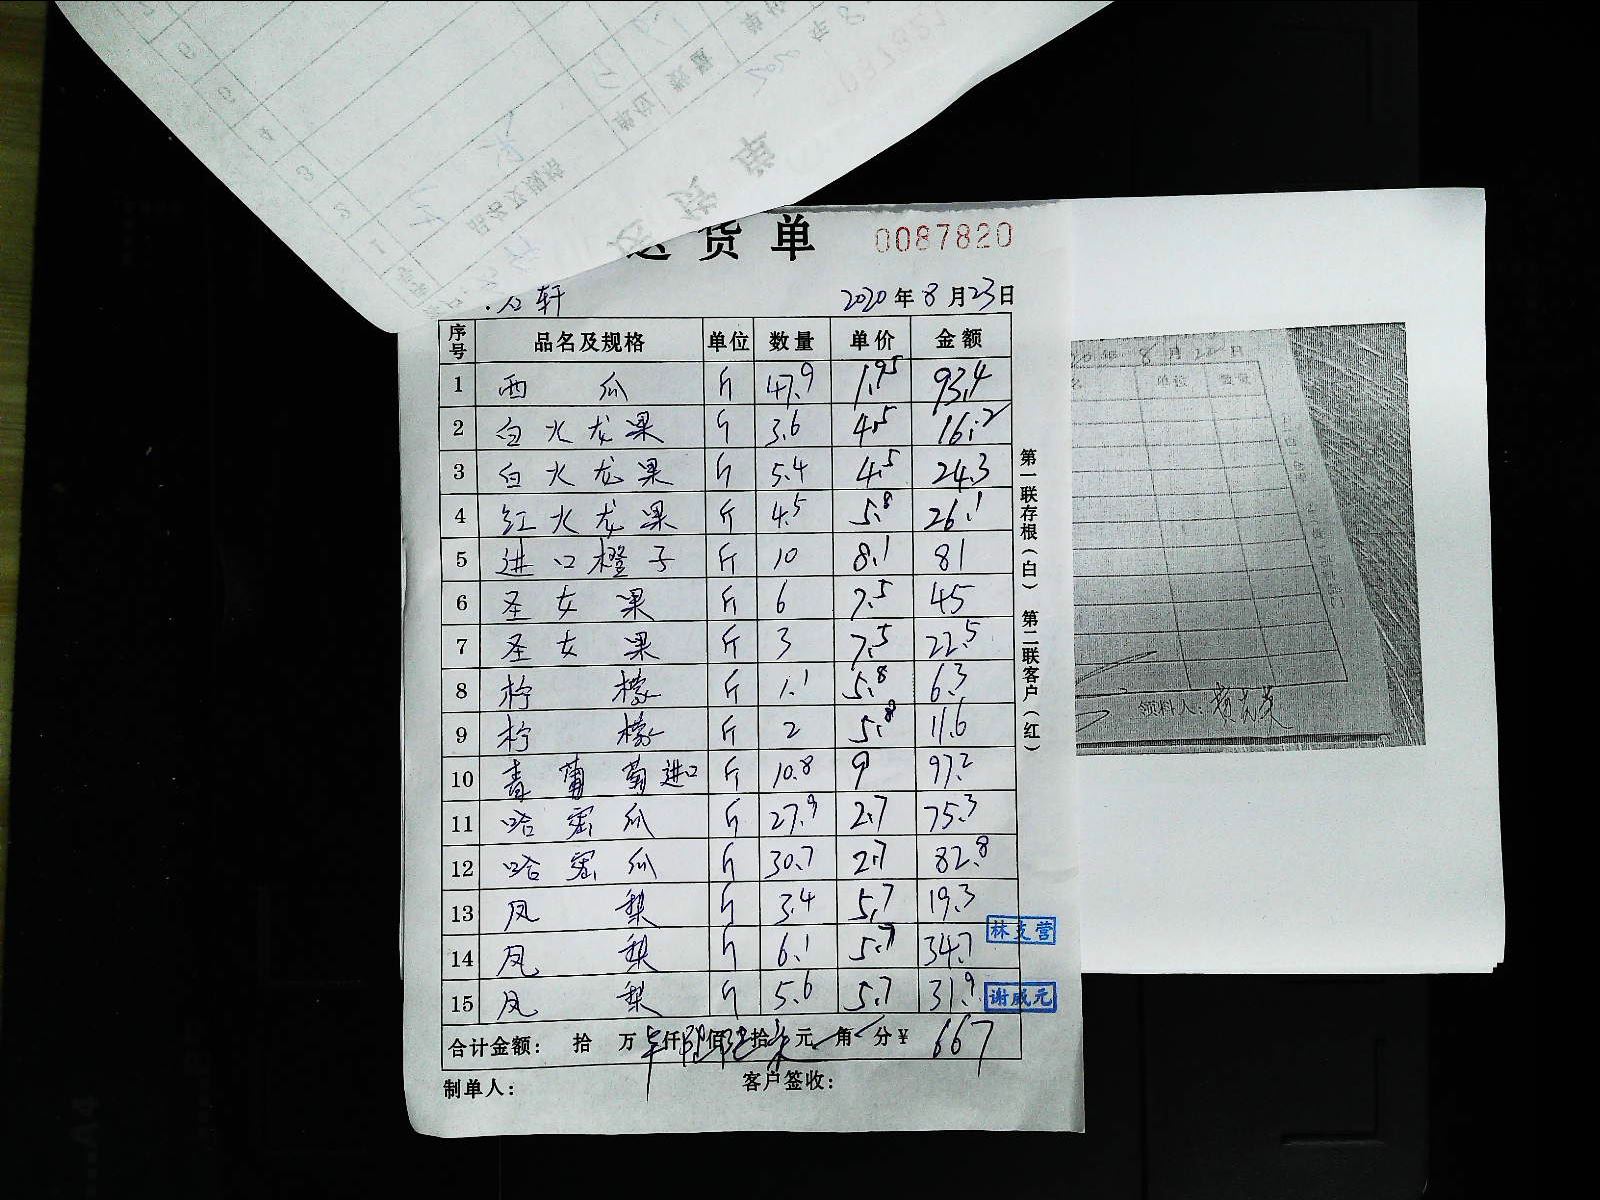 送货单 0087820
轩 2020年8月23日
序号 品名及规格 单位 数量 单价 金额
1 西瓜 斤 47.9 1.95 93.4
2 白火龙果 斤 3.6 4.5 16.2
3 白火龙果 斤 5.4 4.5 24.3
4 红火龙果 斤 4.5 5.8 26.1
5 进口橙子 斤 10 8.1 81
6 圣女果 斤 6 7.5 45
7 圣女果 斤 3 7.5 22.5
8 柠檬 斤 1.1 5.8 6.3
9 柠檬 斤 2 5.8 11.6
10 青葡萄进口 斤 10.8 9 97.2
11 哈密瓜 斤 27.9 2.7 75.3
12 哈密瓜 斤 30.7 2.7 82.8
13 凤梨 斤 3.4 5.7 19.3
14 凤梨 斤 6.1 5.7 34.7
15 凤梨 斤 5.6 5.7 31.9
合计金额： 拾 万 仟 佰 拾 元 角 分 ¥ 667
制单人： 客户签收：
第一联存根（白） 第二联客户（红）
林支营
谢成元
8月22日
单位 数量
领料人：